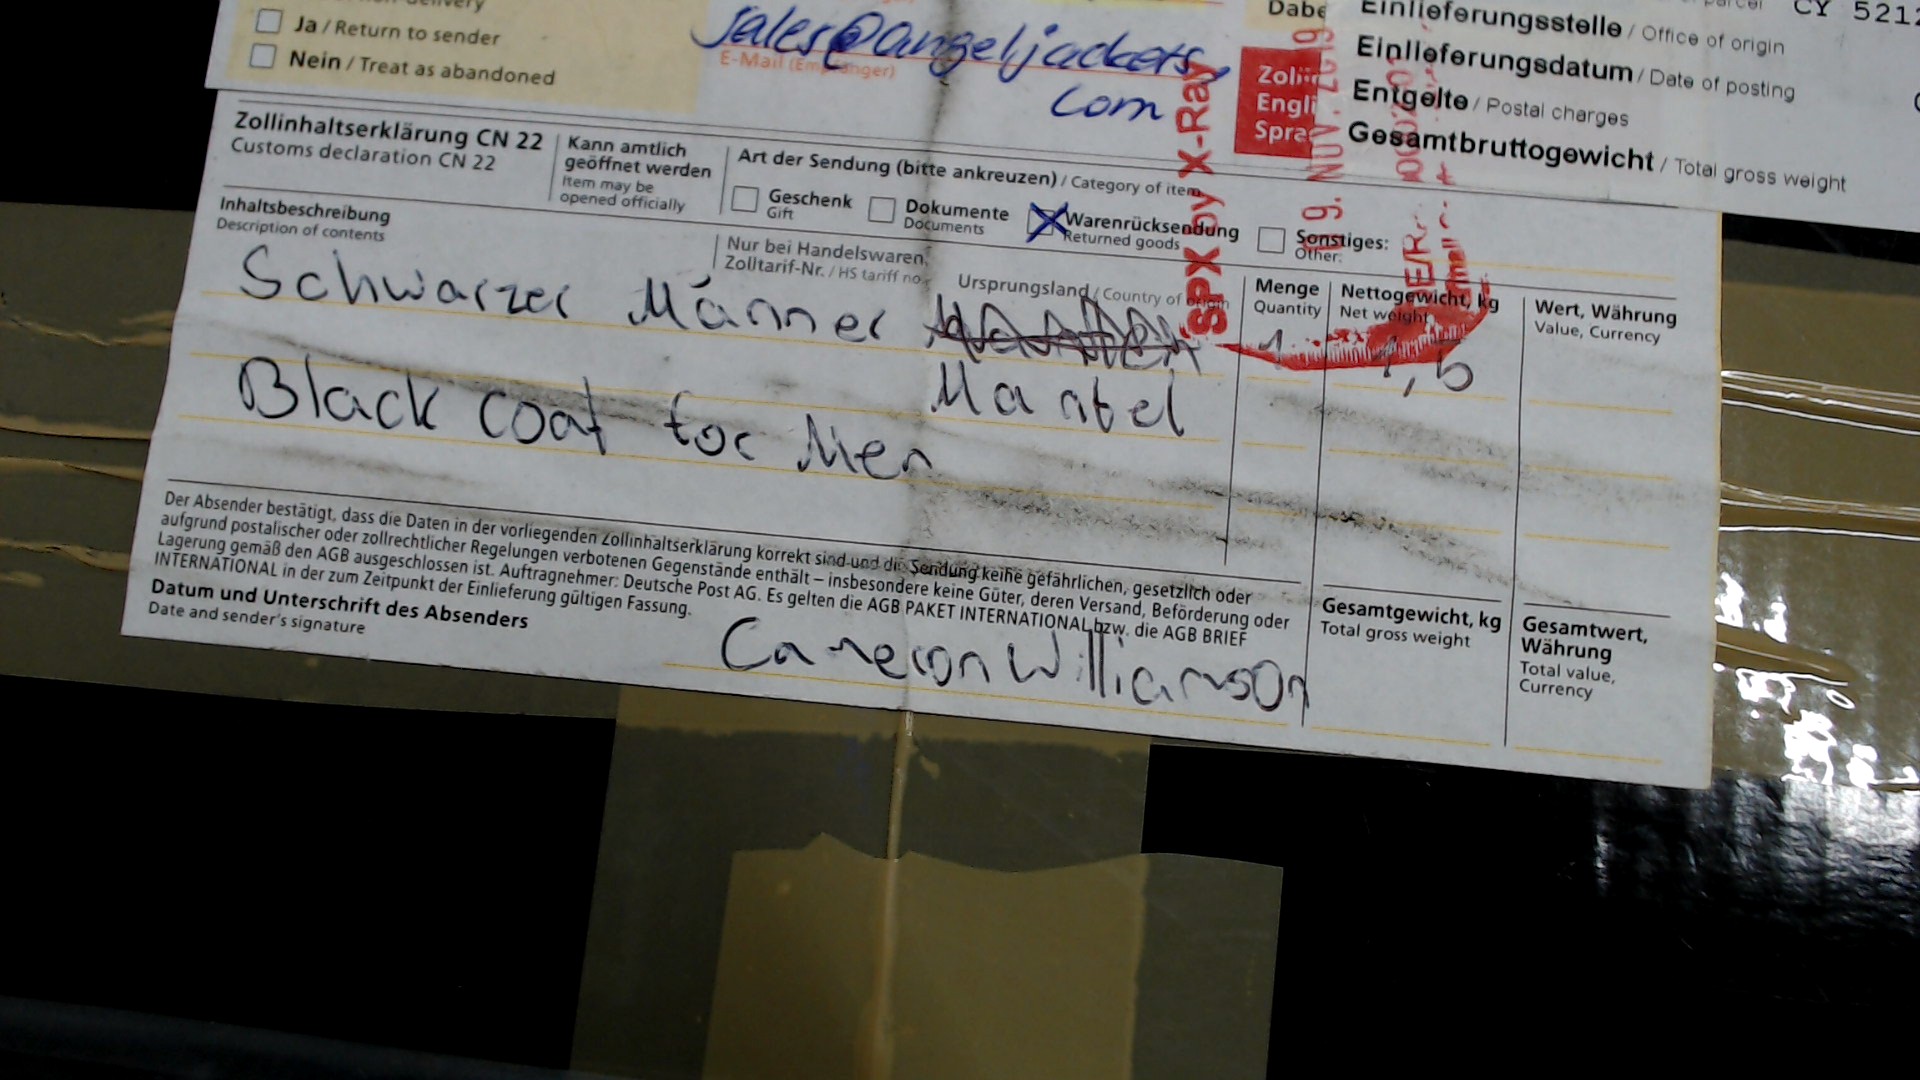 Ja / Return to sender
Nein / Treat as abandoned
sales@angeljackets.
com
E-Mail (Empfänger)
CY 5212
Einlieferungsstelle / Office of origin
Einlieferungsdatum / Date of posting
Entgelte / Postal charges
Gesamtbruttogewicht / Total gross weight
SPX by X-Ray
Zollinhaltserklärung CN 22
Customs declaration CN 22
Kann amtlich
geöffnet werden
Item may be
opened officially
Art der Sendung (bitte ankreuzen) / Category of item
Geschenk
Gift
Dokumente
Documents
Warenrücksendung
Returned goods
Sonstiges:
Other:
Inhaltsbeschreibung
Description of contents
Nur bei Handelswaren,
Zolltarif-Nr. / HS tariff no.
Ursprungsland / Country of origin
Menge
Quantity
Nettogewicht, kg
Net weight
Wert, Währung
Value, Currency
Schwarzer Männer
Mantel
1
1,5
Black coat for Men
Der Absender bestätigt, dass die Daten in der vorliegenden Zollinhaltserklärung korrekt sind und die Sendung keine gefährlichen, gesetzlich oder
aufgrund postalischer oder zollrechtlicher Regelungen verbotenen Gegenstände enthält – insbesondere keine Güter, deren Versand, Beförderung oder
Lagerung gemäß den AGB ausgeschlossen ist. Auftragnehmer: Deutsche Post AG. Es gelten die AGB PAKET INTERNATIONAL bzw. die AGB BRIEF
INTERNATIONAL in der zum Zeitpunkt der Einlieferung gültigen Fassung.
Datum und Unterschrift des Absenders
Date and sender's signature
Cameron Williamson
Gesamtgewicht, kg
Total gross weight
Gesamtwert,
Währung
Total value,
Currency